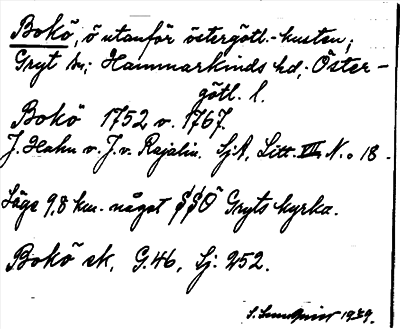 Bokö, ö utanför östergötl.-kusten,
Gryt sn; Hammarkinds hd; Öster-
götl. l.
Bokö 1752 v. 1767.
J. Hahn v. J. v. Rajalin. SjA, Litt. VIII N.o 18.
Läge 9,8 km. något SSO Gryts kyrka.
Bokö sk, G.46, Sj. 252.
S. Sundqvist 1929.